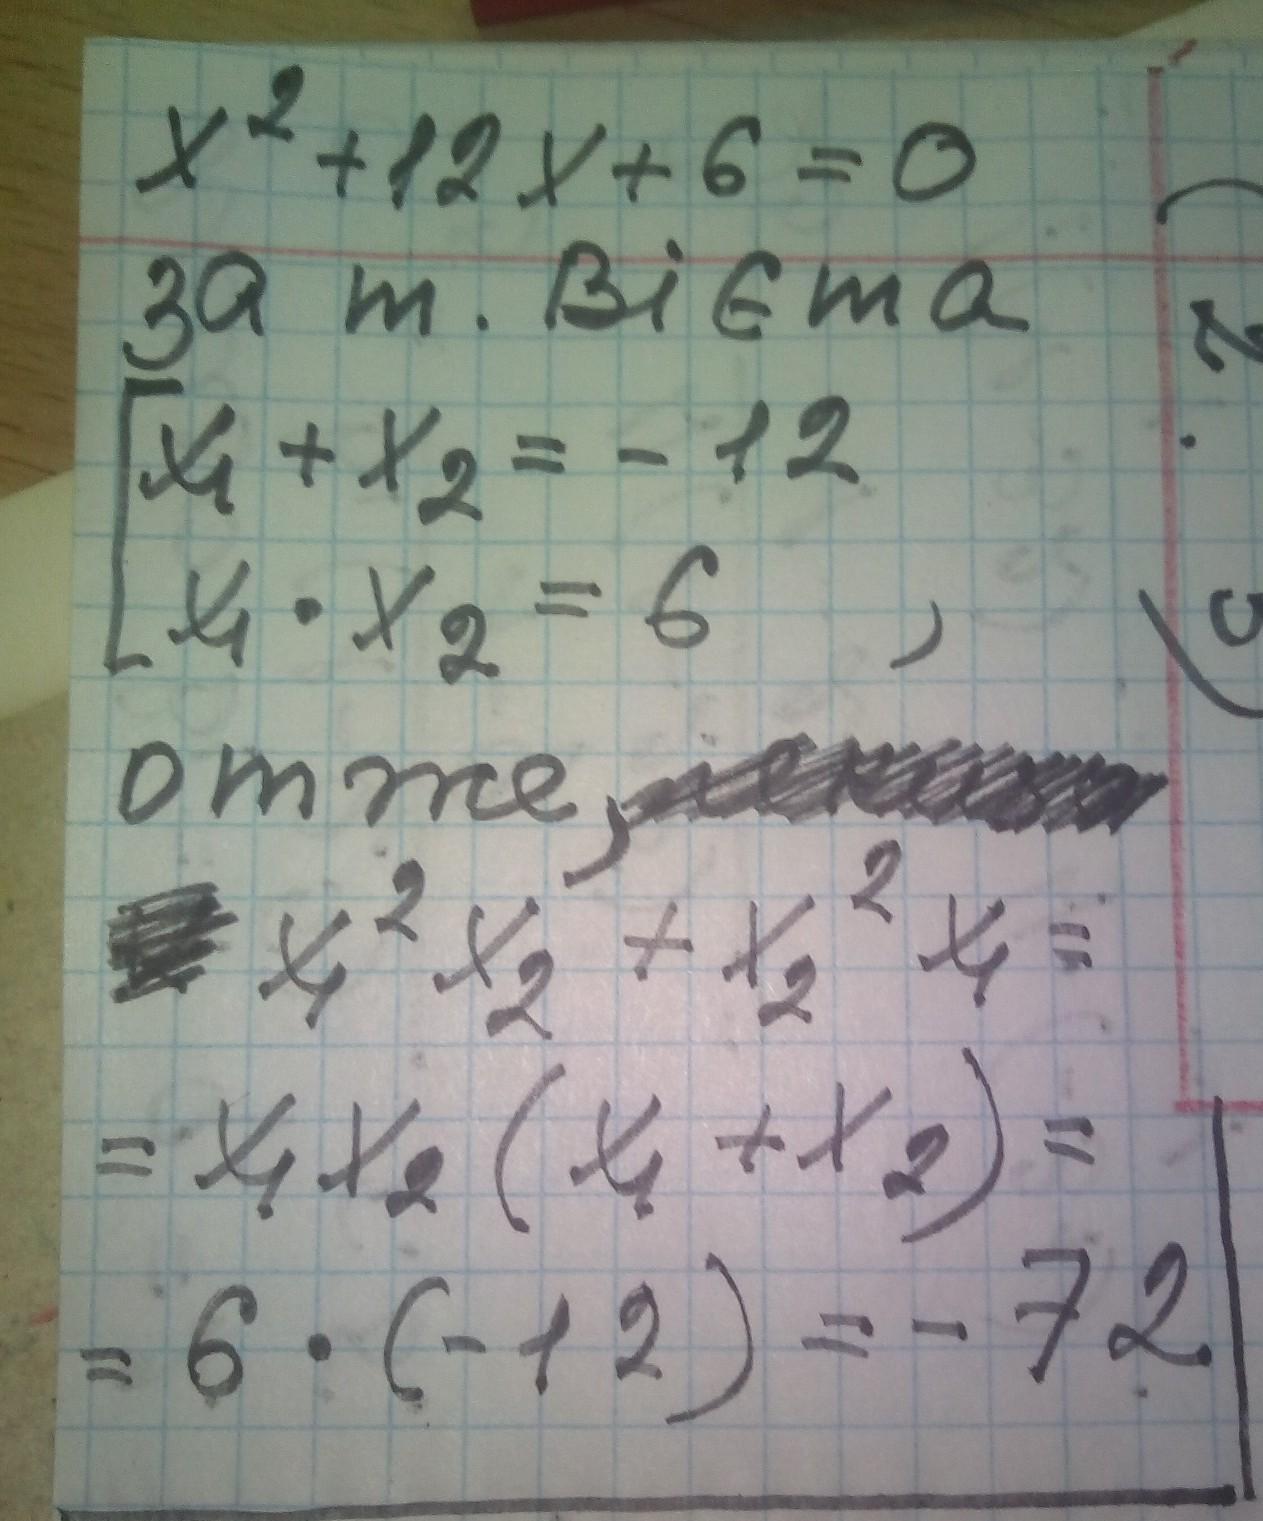 x² + 12x + 6 = 0
за т. Вієта
[x₁ + x₂ = - 12
x₁ · x₂ = 6 ,
отже,
x₁² x₂ + x₂² x₁ =
= x₁ x₂ (x₁ + x₂) =
= 6 · (-12) = - 72